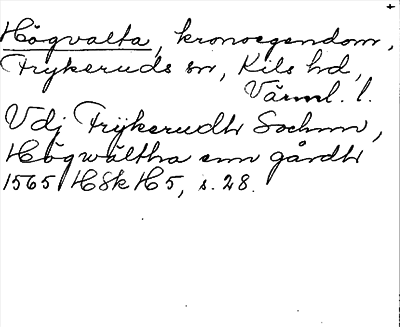 Högvalta, kronoegendom,
Frykeruds sn, Kils hd,
Värml. l.
Vdj Frijkerudh Sochnn,
Högwältha enn gårdh
1565 HSk H5, s. 28.